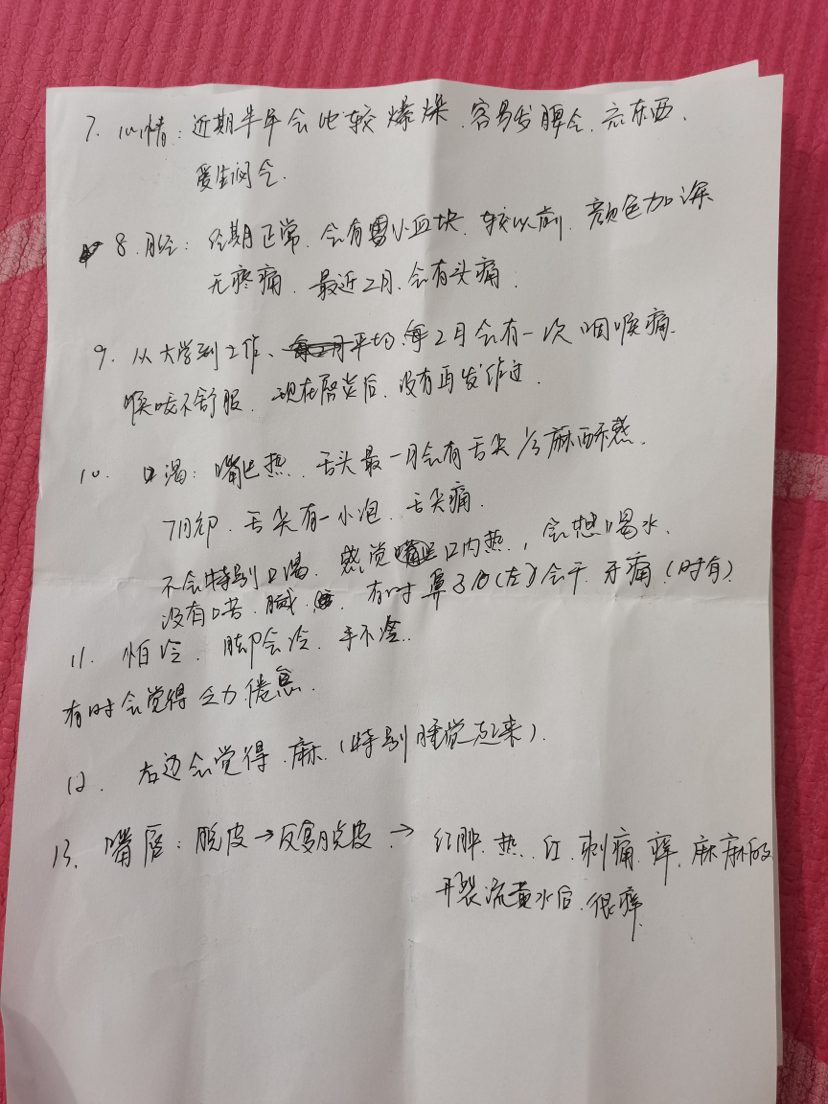 7. 心情：近期半年会比较爆燥、容易发脾气、扔东西、
爱生闷气.
8. 月经：经期正常、会有小血块、较以前、颜色加深
无疼痛、最近2月、会有头痛.
9. 从大学到工作、平均、每2月会有一次咽喉痛.
喉咙不舒服、现在唇炎后、没有再发作过.
10. 口渴：嘴巴热、舌头最一月会有舌尖1/3麻酥感.
7月份、舌尖有一小泡、舌尖痛.
不会特别口渴、感觉口内热，会想喝水.
没有口苦、有时鼻子内(左)会干、牙痛(时有)
11. 怕冷、脚会冷、手不冷..
有时会觉得乏力倦怠.
12. 右边会觉得麻.(特别睡觉起来).
13. 嘴唇：脱皮→反复脱皮→红肿、热、红、刺痛、痒、麻麻的
开裂流黄水后、很痒.